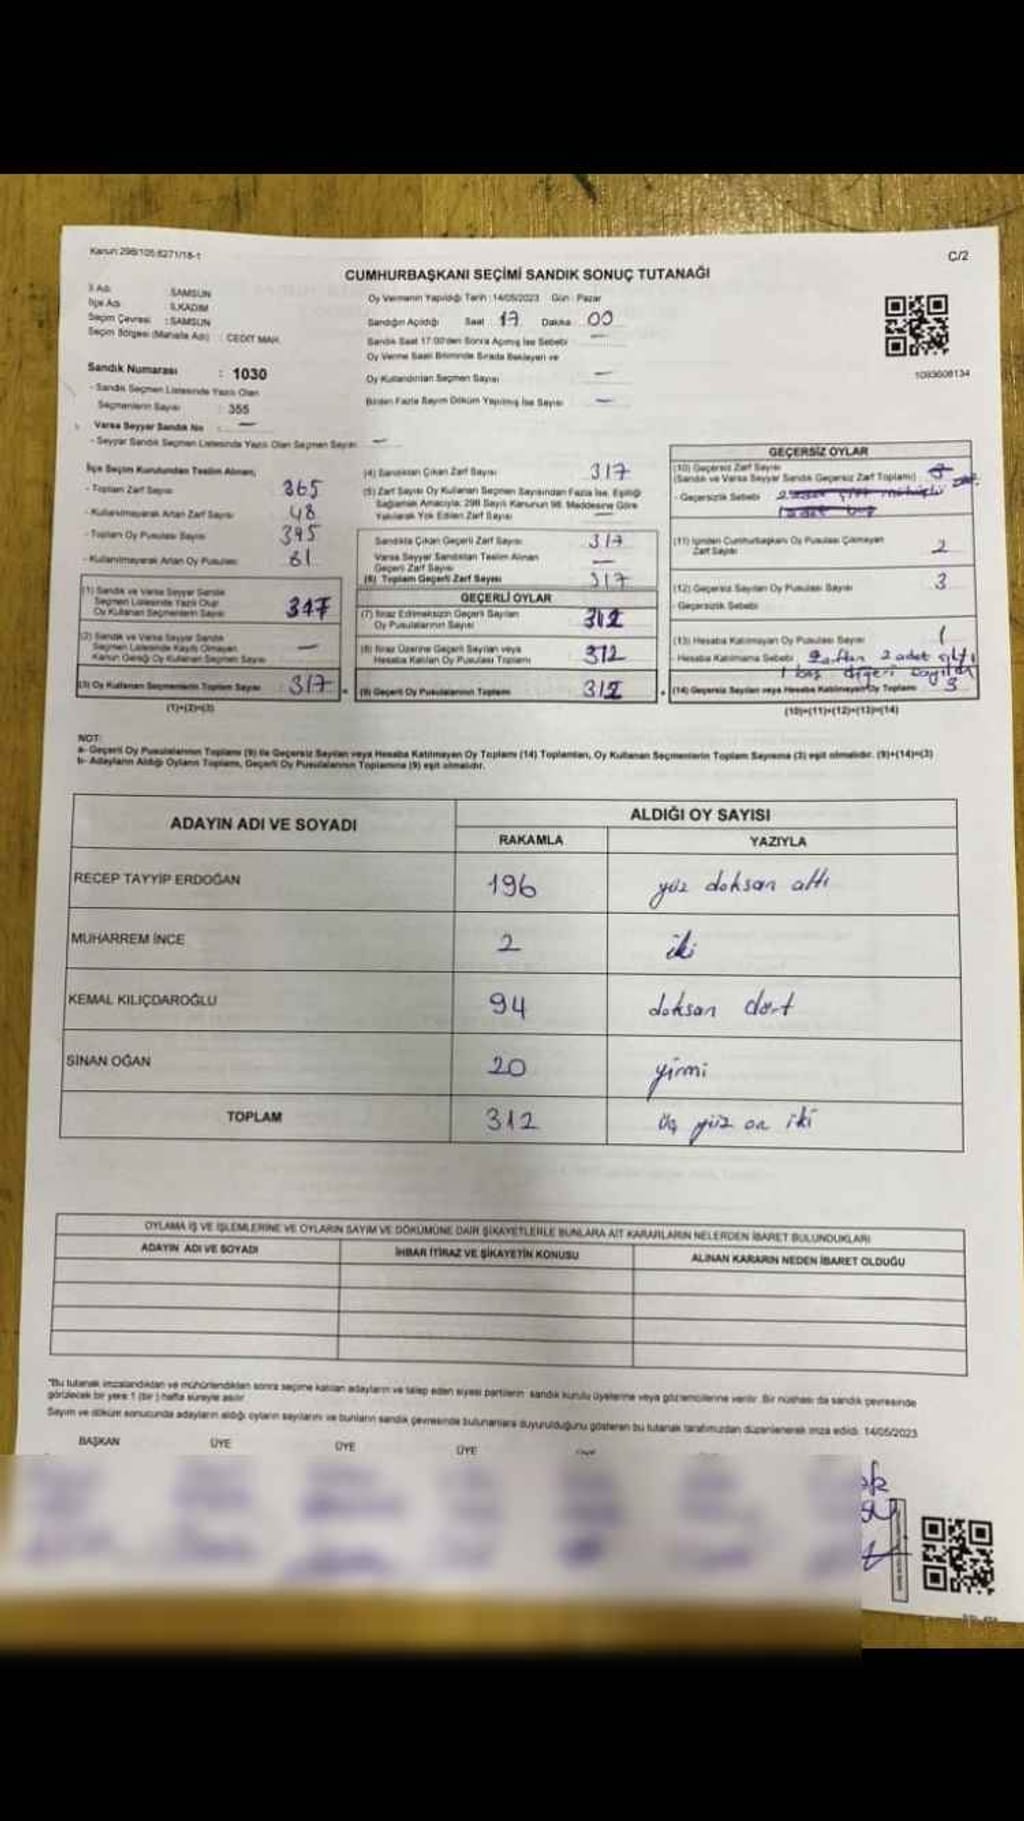 Kanun 298/105:6271/18-1
C/2
CUMHURBAŞKANI SEÇİMİ SANDIK SONUÇ TUTANAĞI
İl Adı SAMSUN
İlçe Adı İLKADIM
Seçim Çevresi : SAMSUN
Seçim Bölgesi (Mahalle Adı) : CEDİT MAH.
Oy Vermenin Yapıldığı Tarih : 14/05/2023 Gün : Pazar
Sandığın Açıldığı Saat 17 Dakika 00
Sandık Saat 17:00'den Sonra Açılmış İse Sebebi —
Oy Verme Saati Bitiminde Sırada Bekleyen ve
Oy Kullandırılan Seçmen Sayısı —
Birden Fazla Sayım Döküm Yapılmış İse Sayısı —
1093608134
Sandık Numarası : 1030
- Sandık Seçmen Listesinde Yazılı Olan
Seçmenlerin Sayısı : 355
Varsa Seyyar Sandık No : —
- Seyyar Sandık Seçmen Listesinde Yazılı Olan Seçmen Sayısı —
İlçe Seçim Kurulundan Teslim Alınan;
- Toplam Zarf Sayısı 365
- Kullanılmayarak Artan Zarf Sayısı 48
- Toplam Oy Pusulası Sayısı 395
- Kullanılmayarak Artan Oy Pusulası 81
(1) Sandık ve Varsa Seyyar Sandık
Seçmen Listesinde Yazılı Olup
Oy Kullanan Seçmenlerin Sayısı 317
(2) Sandık ve Varsa Seyyar Sandık
Seçmen Listesinde Kayıtlı Olmayan
Kanun Gereği Oy Kullanan Seçmen Sayısı —
(3) Oy Kullanan Seçmenlerin Toplam Sayısı 317
(1)+(2)=(3)
(4) Sandıktan Çıkan Zarf Sayısı 317
(5) Zarf Sayısı Oy Kullanan Seçmen Sayısından Fazla İse, Eşitliği
Sağlamak Amacıyla; 298 Sayılı Kanunun 98. Maddesine Göre
Yakılarak Yok Edilen Zarf Sayısı —
Sandıkta Çıkan Geçerli Zarf Sayısı 317
Varsa Seyyar Sandıktan Teslim Alınan
Geçerli Zarf Sayısı —
(6) Toplam Geçerli Zarf Sayısı 317
GEÇERLİ OYLAR
(7) İtiraz Edilmeksizin Geçerli Sayılan
Oy Pusulalarının Sayısı 312
(8) İtiraz Üzerine Geçerli Sayılan veya
Hesaba Katılan Oy Pusulası Toplamı 312
(9) Geçerli Oy Pusulalarının Toplamı 312
GEÇERSİZ OYLAR
(10) Geçersiz Zarf Sayısı
(Sandık ve Varsa Seyyar Sandık Geçersiz Zarf Toplamı)
- Geçersizlik Sebebi
(11) İçinden Cumhurbaşkanı Oy Pusulası Çıkmayan
Zarf Sayısı 2
(12) Geçersiz Sayılan Oy Pusulası Sayısı 3
- Geçersizlik Sebebi
(13) Hesaba Katılmayan Oy Pusulası Sayısı 1
- Hesaba Katılmama Sebebi 2 adet çıktı
1 boş diğeri sayıldı
(14) Geçersiz Sayılan veya Hesaba Katılmayan Oy Toplamı 3
(10)+(11)+(12)+(13)=(14)
NOT:
a- Geçerli Oy Pusulalarının Toplamı (9) ile Geçersiz Sayılan veya Hesaba Katılmayan Oy Toplamı (14) Toplamları, Oy Kullanan Seçmenlerin Toplam Sayısına (3) eşit olmalıdır. (9)+(14)=(3)
b- Adayların Aldığı Oyların Toplamı, Geçerli Oy Pusulalarının Toplamına (9) eşit olmalıdır.
ADAYIN ADI VE SOYADI
ALDIĞI OY SAYISI
RAKAMLA YAZIYLA
RECEP TAYYİP ERDOĞAN 196 yüz doksan altı
MUHARREM İNCE 2 iki
KEMAL KILIÇDAROĞLU 94 doksan dört
SİNAN OĞAN 20 yirmi
TOPLAM 312 üç yüz on iki
OYLAMA İŞ VE İŞLEMLERİNE VE OYLARIN SAYIM VE DÖKÜMÜNE DAİR ŞİKAYETLERLE BUNLARA AİT KARARLARIN NELERDEN İBARET BULUNDUKLARI
ADAYIN ADI VE SOYADI İHBAR İTİRAZ VE ŞİKAYETİN KONUSU ALINAN KARARIN NEDEN İBARET OLDUĞU
*Bu tutanak imzalandıktan ve mühürlendikten sonra seçime katılan adayların ve talep eden siyasi partilerin sandık kurulu üyelerine veya gözlemcilerine verilir. Bir nüshası da sandık çevresinde
görülecek bir yere 1 (bir) hafta süreyle asılır.
Sayım ve döküm sonucunda adayların aldığı oyların sayılarını ve bunların sandık çevresinde bulunanlara duyurulduğunu gösteren bu tutanak tarafımızdan düzenlenerek imza edildi. 14/05/2023
BAŞKAN ÜYE ÜYE ÜYE